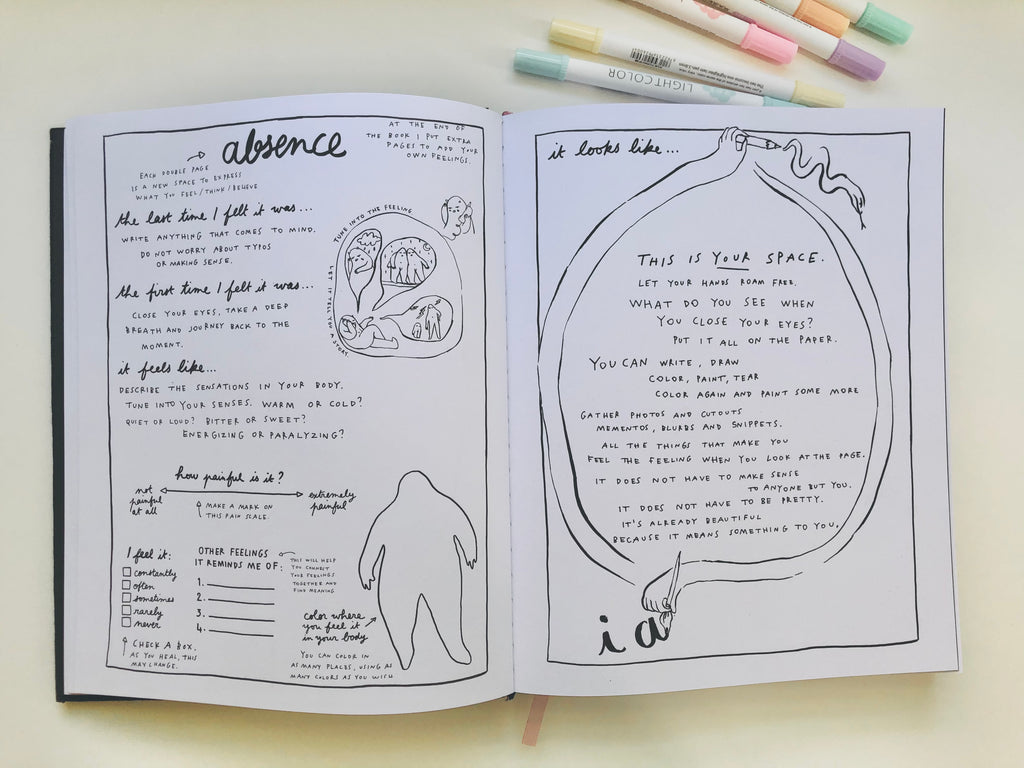 absence
AT THE END OF
THE BOOK I PUT EXTRA
PAGES TO ADD YOUR
OWN FEELINGS.
EACH DOUBLE PAGE
IS A NEW SPACE TO EXPRESS
WHAT YOU FEEL/THINK/BELIEVE
the last time I felt it was...
WRITE ANYTHING THAT COMES TO MIND.
DO NOT WORRY ABOUT TYPOS
OR MAKING SENSE.
TUNE INTO THE FEELING
LET IT TELL YOU A STORY.
the first time I felt it was...
CLOSE YOUR EYES, TAKE A DEEP
BREATH AND JOURNEY BACK TO THE
MOMENT.
it feels like...
DESCRIBE THE SENSATIONS IN YOUR BODY.
TUNE INTO YOUR SENSES. WARM OR COLD?
QUIET OR LOUD? BITTER OR SWEET?
ENERGIZING OR PARALYZING?
how painful is it?
not
painful
at all
extremely
painful
MAKE A MARK ON
THIS PAIN SCALE.
I feel it:
constantly
often
sometimes
rarely
never
CHECK A BOX.
AS YOU HEAL, THIS
MAY CHANGE.
OTHER FEELINGS
IT REMINDS ME OF:
1.
2.
3.
4.
THIS WILL HELP
YOU CONNECT
YOUR FEELINGS
TOGETHER AND
FIND MEANING
color where
you feel it
in your body
YOU CAN COLOR IN
AS MANY PLACES, USING AS
MANY COLORS AS YOU WISH
it looks like...
THIS IS YOUR SPACE.
LET YOUR HANDS ROAM FREE.
WHAT DO YOU SEE WHEN
YOU CLOSE YOUR EYES?
PUT IT ALL ON THE PAPER.
YOU CAN WRITE, DRAW
COLOR, PAINT, TEAR
COLOR AGAIN AND PAINT SOME MORE
GATHER PHOTOS AND CUTOUTS
MEMENTOS, BLURBS AND SNIPPETS.
ALL THE THINGS THAT MAKE YOU
FEEL THE FEELING WHEN YOU LOOK AT THE PAGE.
IT DOES NOT HAVE TO MAKE SENSE
TO ANYONE BUT YOU.
IT DOES NOT HAVE TO BE PRETTY.
IT'S ALREADY BEAUTIFUL
BECAUSE IT MEANS SOMETHING TO YOU.
i a
LIGHTCOLOR